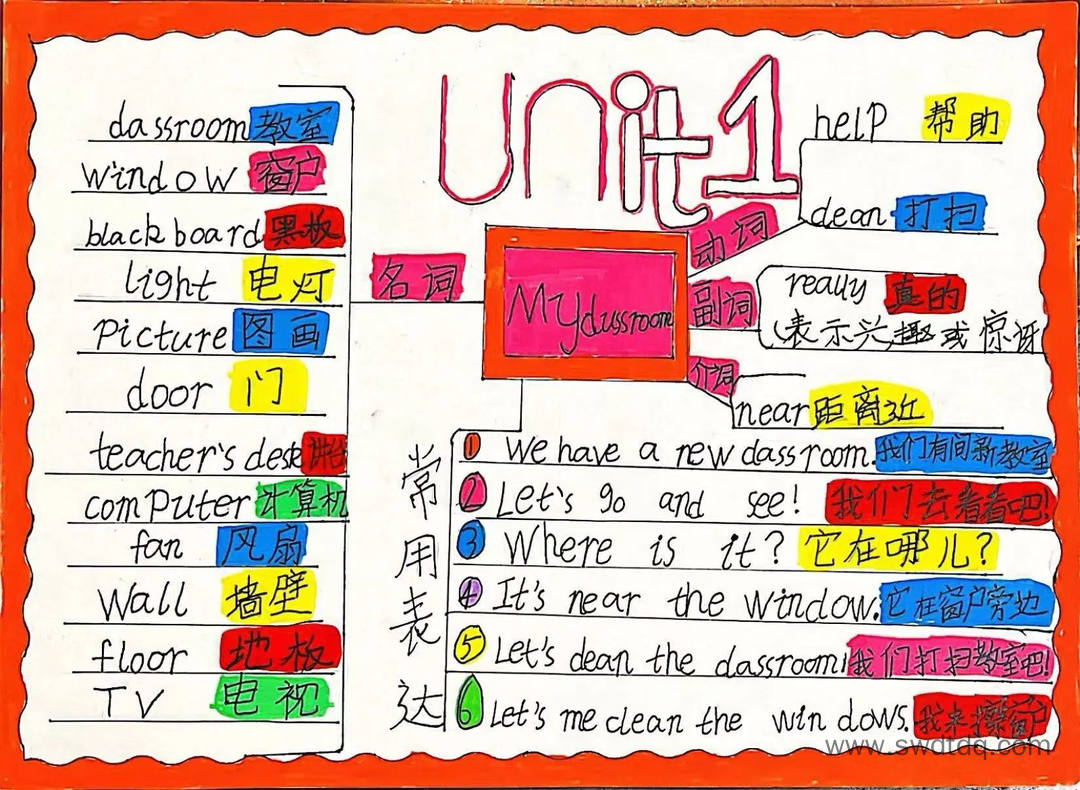 Unit 1
My classroom
名词
classroom 教室
window 窗户
blackboard 黑板
light 电灯
picture 图画
door 门
teacher's desk 讲台
computer 计算机
fan 风扇
wall 墙壁
floor 地板
TV 电视
动词
help 帮助
clean 打扫
副词
really 真的
(表示兴趣或惊讶
介词
near 距离近
常用表达
1 We have a new classroom. 我们有间新教室
2 Let's go and see! 我们去看看吧!
3 Where is it? 它在哪儿?
4 It's near the window. 它在窗户旁边
5 Let's clean the classroom! 我们打扫教室吧!
6 Let's me clean the windows. 我来擦窗户
www.swdtdq.com